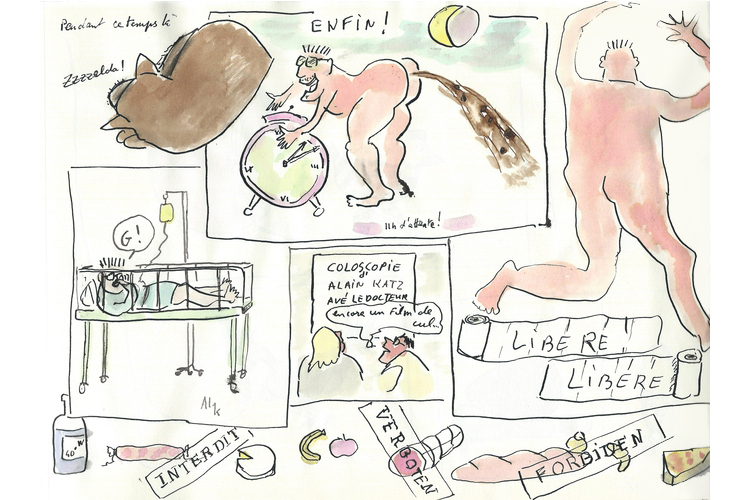 Pendant ce temps là
Zzzzelda!
ENFIN!
VI
11h d'attente!
G!
COLOSCOPIE
d'
ALAIN KATZ
AVÉ LE DOCTEUR
encore un film de
cul...
LIBERE
LIBERE
Alk
40°
INTERDIT
VERBOTEN
FORBIDEN